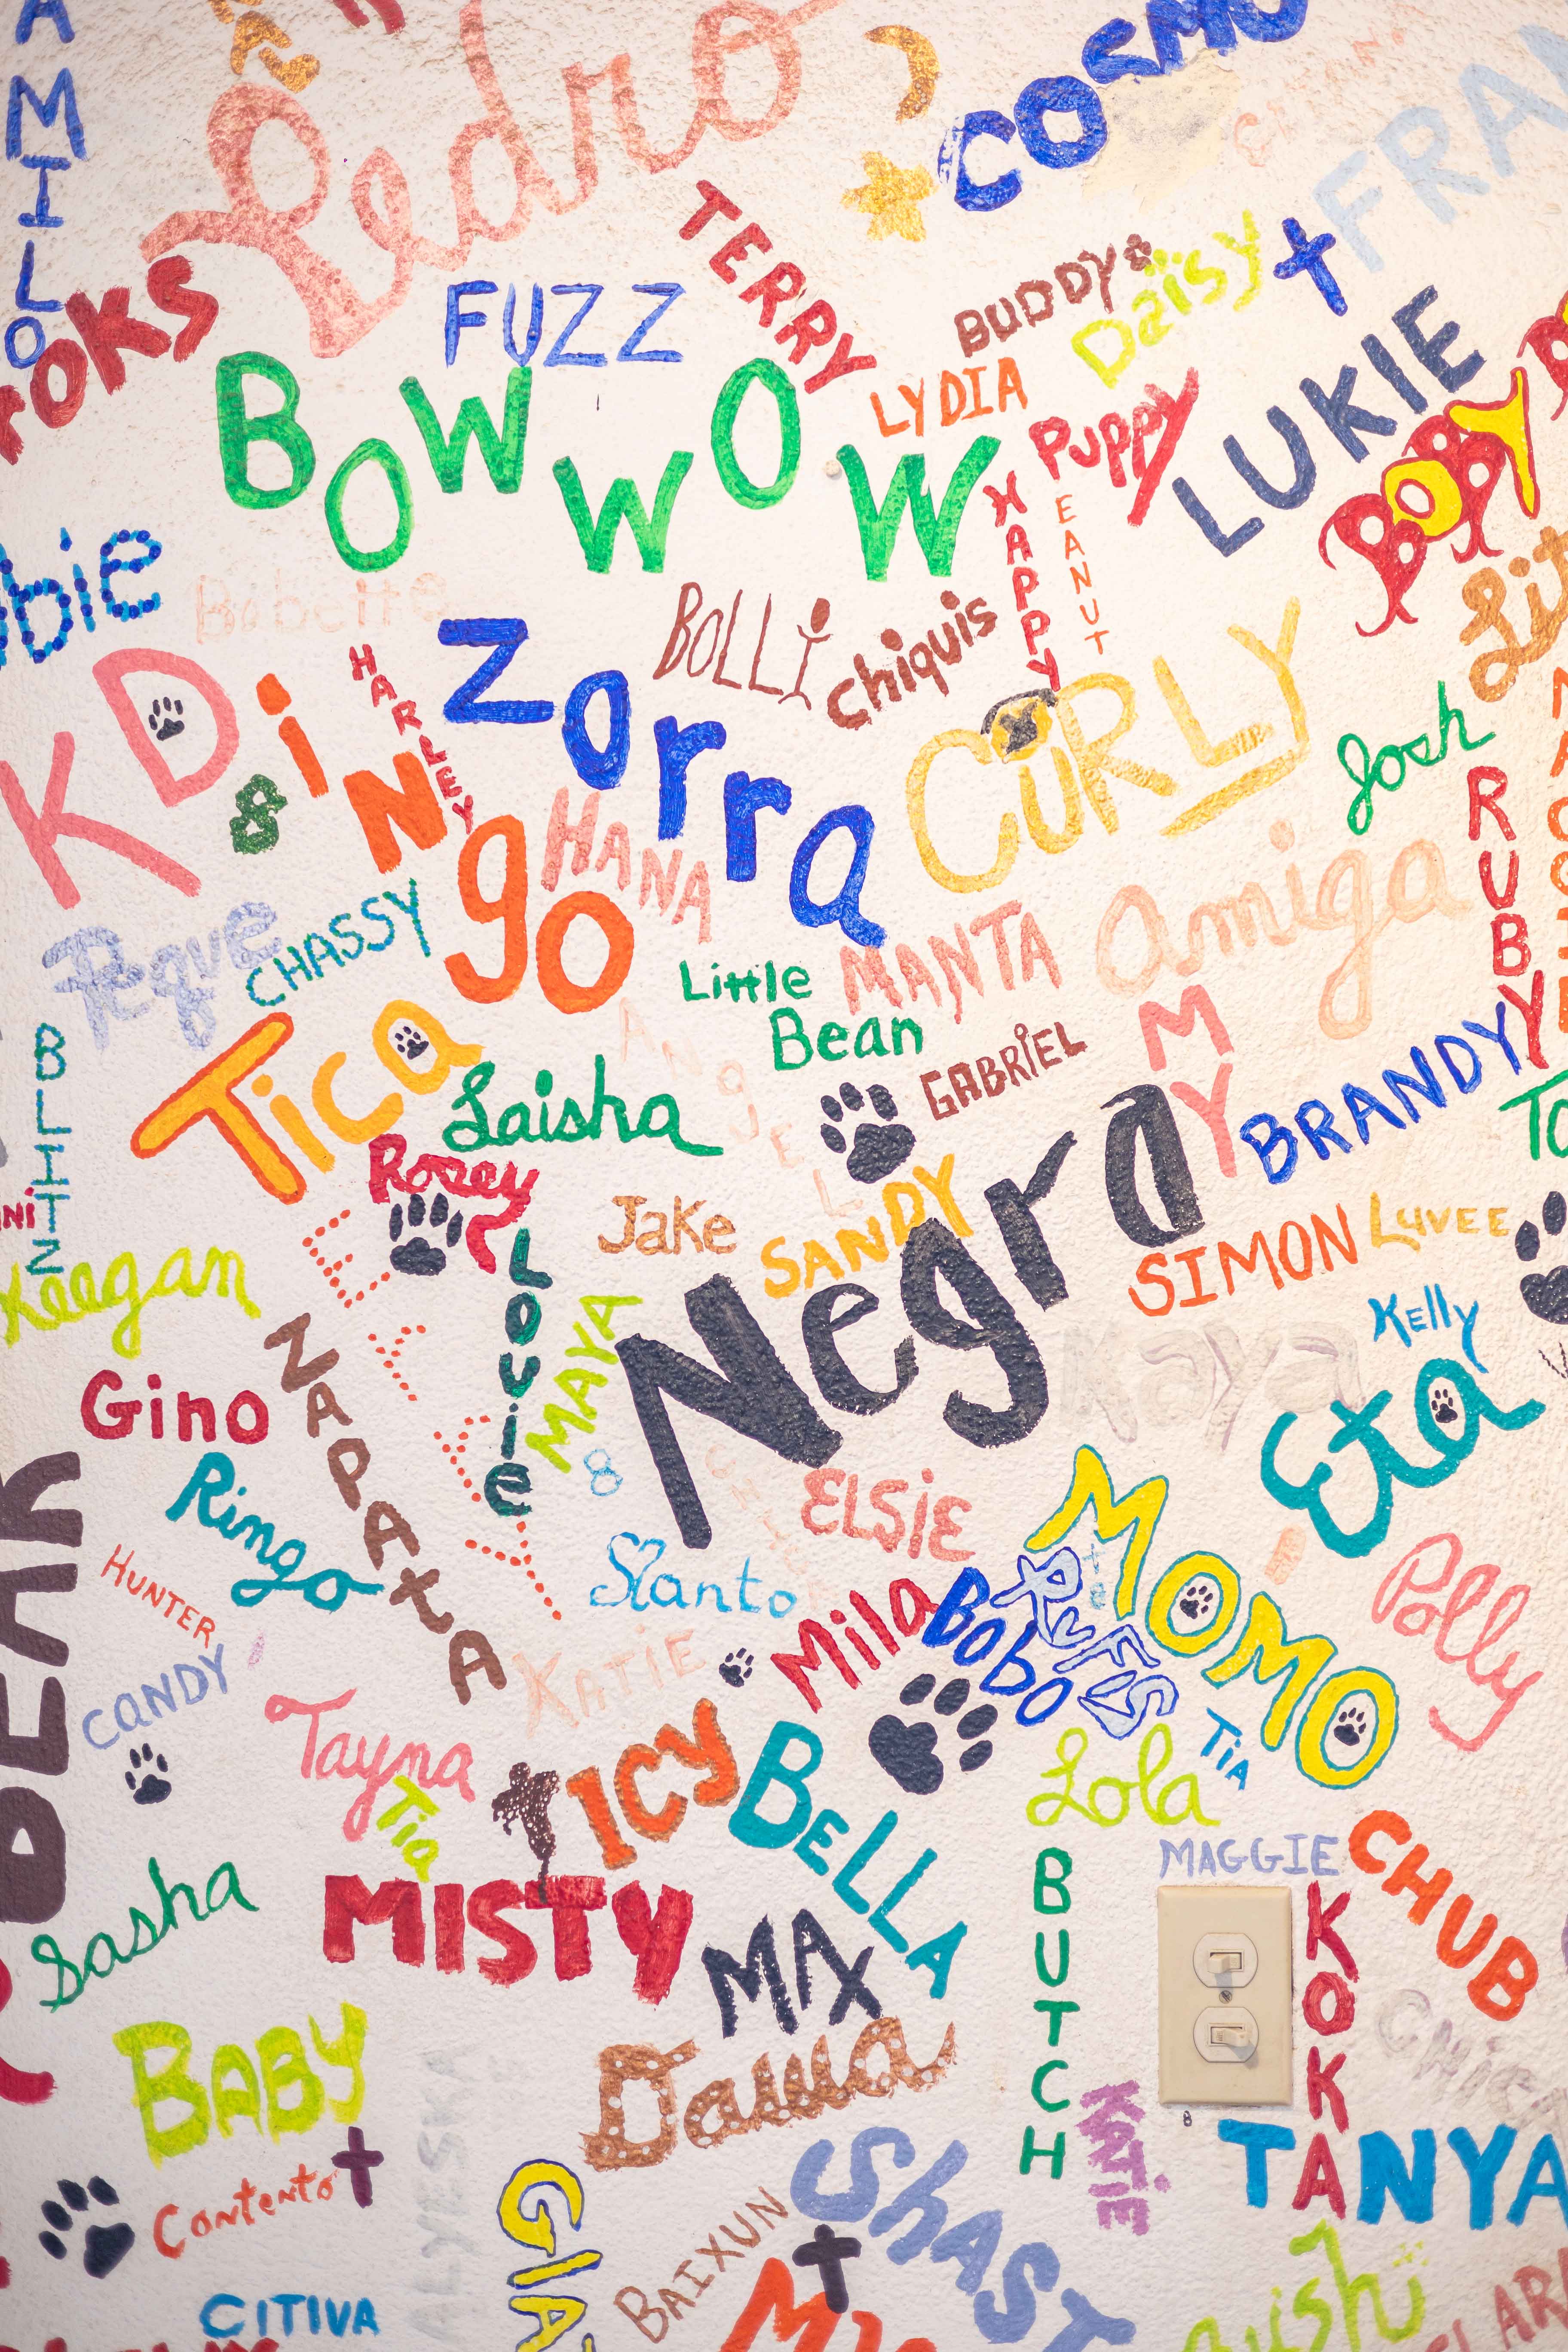 Pedro
COSMO
TERRY
FUZZ
BUDDY
Daisy
LUKIE
LYDIA
BOW WOW
PUPPY
PEANUT
HAPPY
BOBY
Babette
BOLLi
chiquis
Zorra
HARLEY
KD
DiNgo
CURLY
Josh
RUBY
HANA
Amiga
Peque
CHASSY
Little
Bean
MANTA
AMY
GABRiEL
BRANDY
BLITZ
Tica
Laisha
ANGUEL
Rosey
Jake
SANDY
Negra
SIMON
Luvee
Keegan
Louie
MAYA
Kaya
Kelly
Eta
Gino
ZAPAtA
Ringo
ELSiE
MOMO
Polly
HUNTER
Slanto
Mila
Bobo
CANDY
KATiE
Tayna
Tia
ICY
BELLA
Lola
Tia
MAGGIE
CHUB
Sasha
MISTY
MAX
BUTCH
KOKA
BABY
Dawa
KaTiE
TANYA
Contento
ShAST
BAIXUN
CITIVA